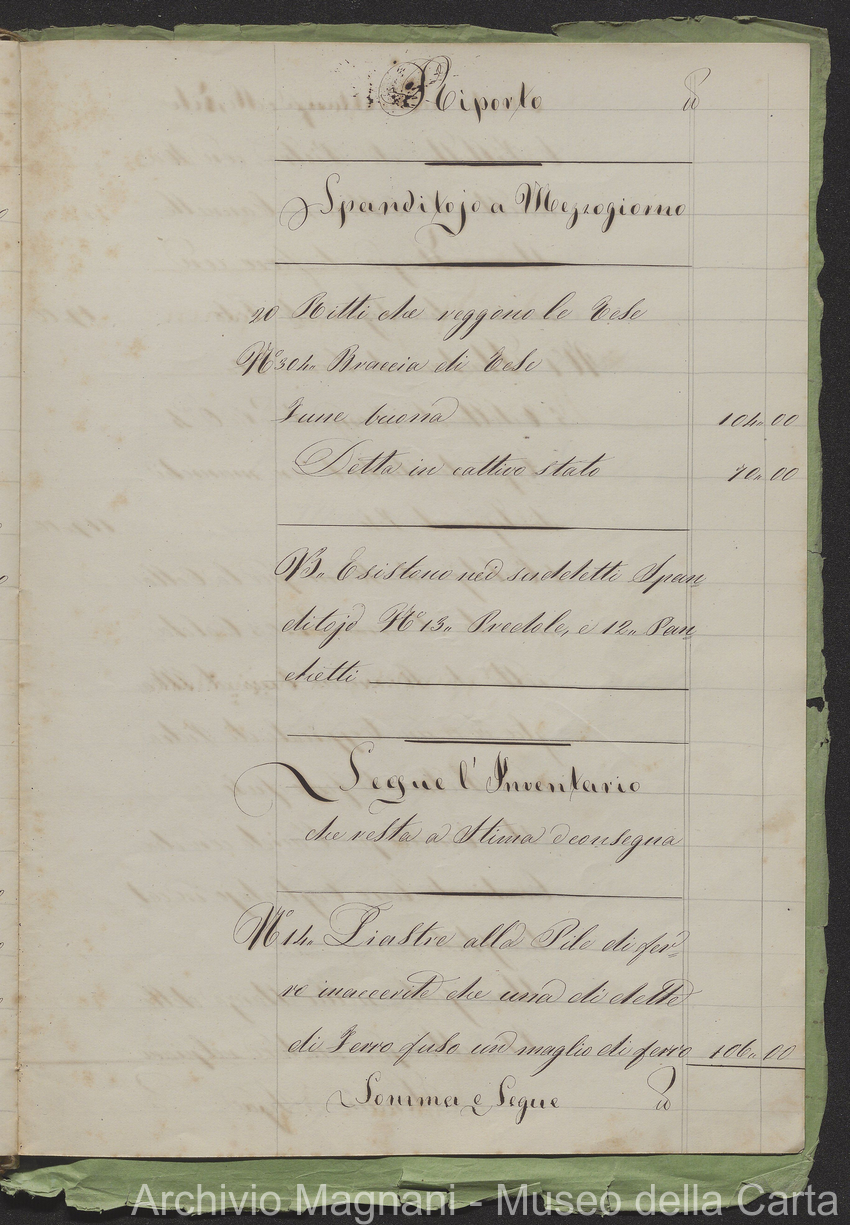 Riporto
Spanditojo a Mezzogiorno
20 Ritti che reggono le Tese
N.º 304,, Braccia di Tese
Fune buona 104,, 00
Detta in cattivo stato 70,, 00
NB,, Esistono nei sudetti Span=
ditojo N.º 13,, Predole, e 12,, Pan=
chetti
Segue l'Inventario
che resta a Stima e consegna
N.º 14,, Piastre alla Pile di fer=
ro inaccerite che una di dette
di Ferro fuso un maglio di ferro 106,, 00
Somma e Segue
Archivio Magnani - Museo della Carta